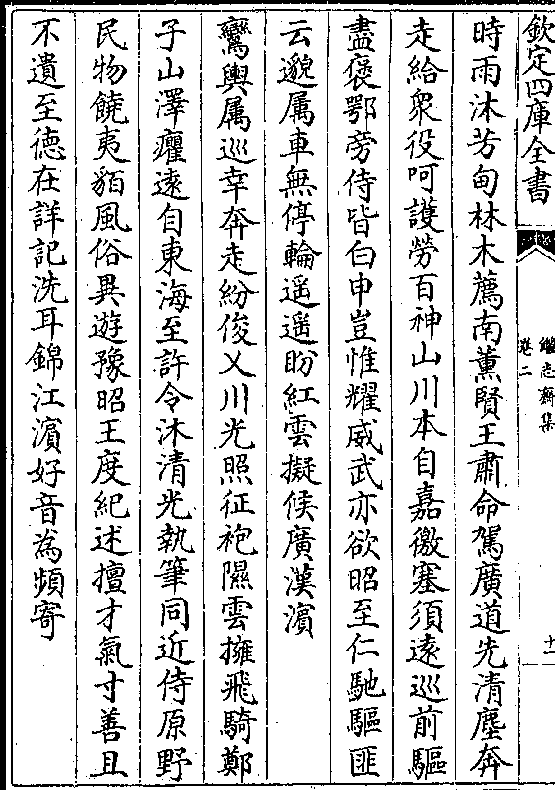 欽定四庫全書
繼志齋集
卷二
十一
時雨沐芳甸林木薦南薰賢王肅命駕廣道先清塵奔
走給衆役呵護勞百神山川本自嘉徼塞須遠巡前驅
盡褒鄂旁侍皆白申豈惟耀威武亦欲昭至仁馳驅匪
云邈属車無停輪遥遥盼紅雲擬候廣漢濵
鸞輿属巡幸奔走紛俊乂川光照征袍隰雲擁飛騎鄭
子山澤癯逺自東海至許令沐清光執筆同近侍原野
民物饒夷貊風俗異遊豫昭王度紀述擅才氣寸善且
不遺至德在詳記洗耳錦江濵好音為頻寄